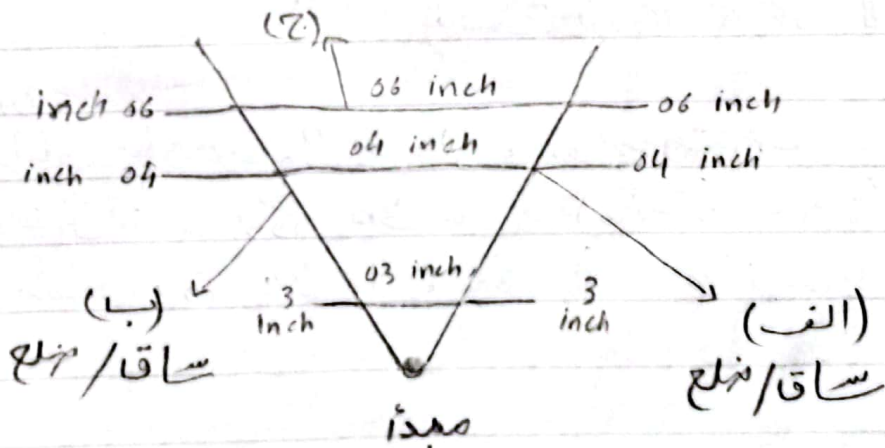 (ح)
06 inch
inch 06
06 inch
04 inch
inch 04
04 inch
03 inch
3
inch
3
inch
(ب)
ساق/ ضلع
(الف)
ساق/ ضلع
مبدأ